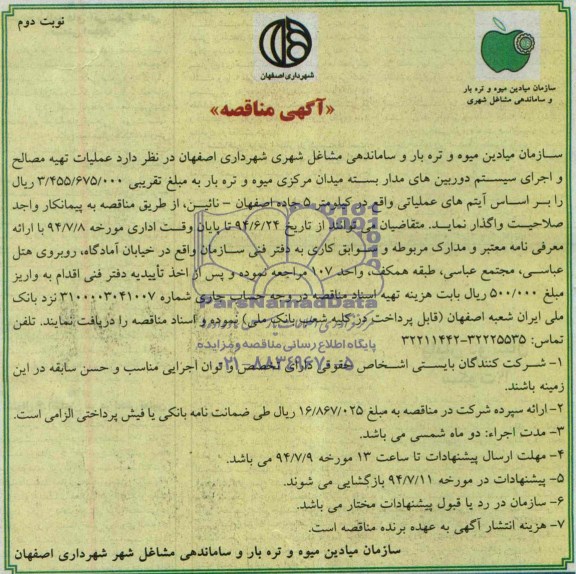 نوبت دوم
شهرداری اصفهان
سازمان میادین میوه و تره بار
و ساماندهی مشاغل شهری
«آگهی مناقصه»
سازمان میادین میوه و تره بار و ساماندهی مشاغل شهری شهرداری اصفهان در نظر دارد عملیات تهیه مصالح
و اجرای سیستم دوربین های مدار بسته میدان مرکزی میوه و تره بار به مبلغ تقریبی ۳/۴۵۵/۶۷۵/۰۰۰ ریال
را بر اساس آیتم های عملیاتی واقع در کیلومتر ۵ جاده اصفهان – نائین، از طریق مناقصه به پیمانکار واجد
صلاحیت واگذار نماید. متقاضیان می توانند از تاریخ ۹۴/۶/۲۴ تا پایان وقت اداری مورخه ۹۴/۷/۸ با ارائه
معرفی نامه معتبر و مدارک مربوطه و سوابق کاری به دفتر فنی سازمان واقع در خیابان آمادگاه، روبروی هتل
عباسی، مجتمع عباسی، طبقه همکف، واحد ۱۰۷ مراجعه نموده و پس از اخذ تأییدیه دفتر فنی اقدام به واریز
مبلغ ۵۰۰/۰۰۰ ریال بابت هزینه تهیه اسناد مناقصه در وجه حساب جاری شماره ۳۱۰۰۰۰۳۰۴۱۰۰۷ نزد بانک
ملی ایران شعبه اصفهان (قابل پرداخت در کلیه شعب بانک ملی) نموده و اسناد مناقصه را دریافت نمایند. تلفن
تماس: ۳۲۲۲۵۵۳۵-۳۲۲۱۱۴۴۲
۱- شرکت کنندگان بایستی اشخاص حقوقی دارای تخصص، توان اجرایی مناسب و حسن سابقه در این
زمینه باشند.
۲- ارائه سپرده شرکت در مناقصه به مبلغ ۱۶/۸۶۷/۰۲۵ ریال طی ضمانت نامه بانکی یا فیش پرداختی الزامی است.
۳- مدت اجراء: دو ماه شمسی می باشد.
۴- مهلت ارسال پیشنهادات تا ساعت ۱۳ مورخه ۹۴/۷/۹ می باشد.
۵- پیشنهادات در مورخه ۹۴/۷/۱۱ بازگشایی می شوند.
۶- سازمان در رد یا قبول پیشنهادات مختار می باشد.
۷- هزینه انتشار آگهی به عهده برنده مناقصه است.
سازمان میادین میوه و تره بار و ساماندهی مشاغل شهر شهرداری اصفهان
ParsNamadData
پایگاه اطلاع رسانی مناقصه و مزایده
۰۲۱-۸۸۳۴۹۶۷۰-۵